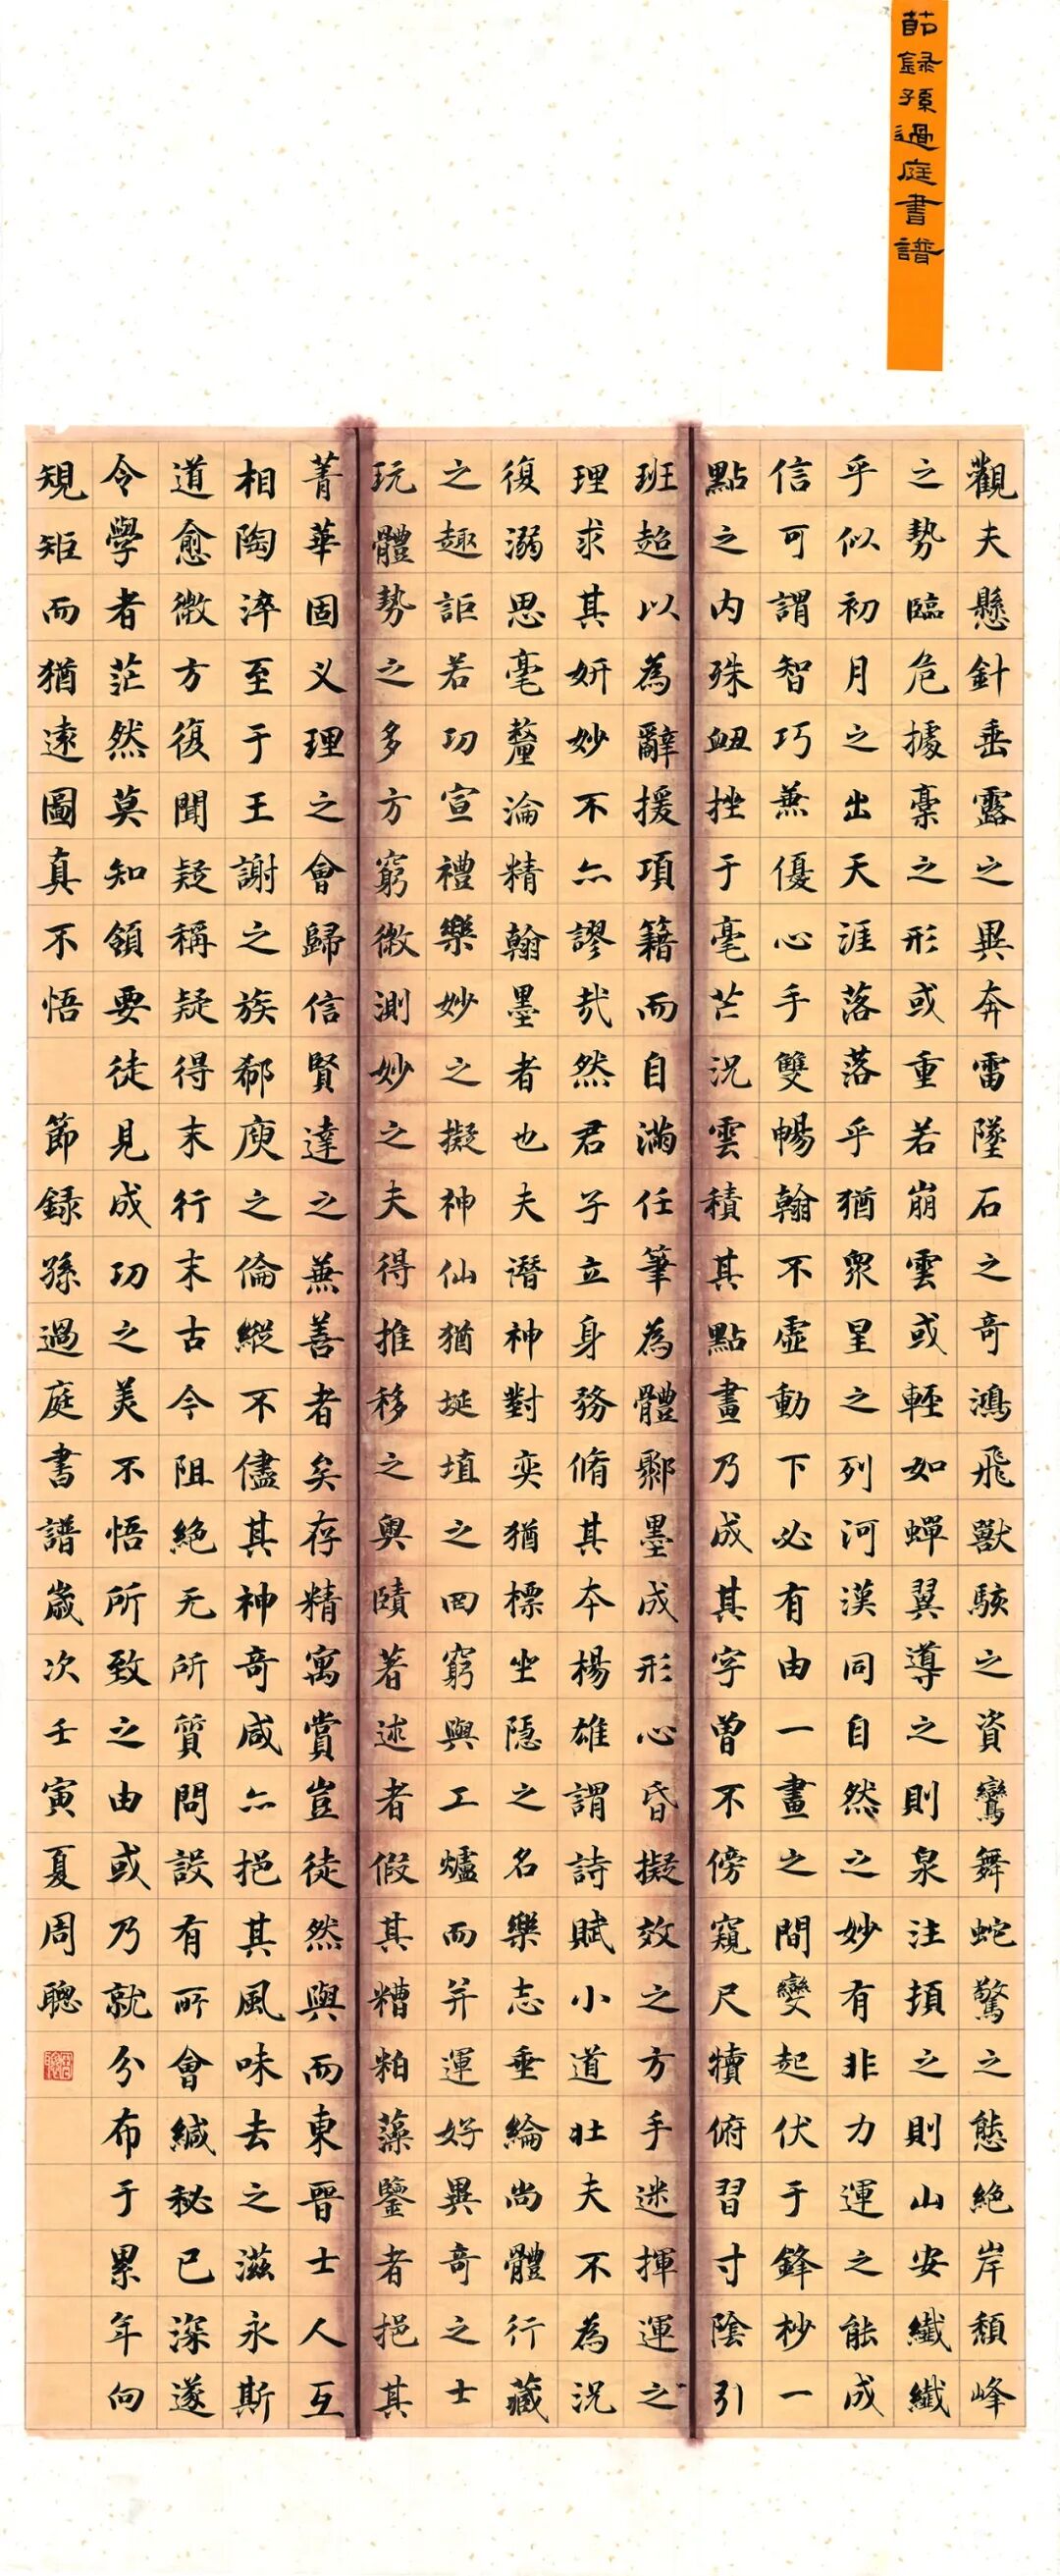 節錄孫過庭書譜
觀夫懸針垂露之異奔雷墜石之奇鴻飛獸駭之資鸞舞蛇驚之態絕岸頹峰
之勢臨危據槀之形或重若崩雲或輕如蟬翼導之則泉注頓之則山安纖纖
乎似初月之出天涯落落乎猶眾星之列河漢同自然之妙有非力運之能成
信可謂智巧兼優心手雙暢翰不虛動下必有由一畫之間變起伏于鋒杪一
點之內殊衄挫于毫芒況雲積其點畫乃成其字曾不傍窺尺犢俯習寸陰引
班超以為辭援項籍而自滿任筆為體聚墨成形心昏擬效之方手迷揮運之
理求其妍妙不亦謬哉然君子立身務脩其本楊雄謂詩賦小道壯夫不為況
復溺思毫釐淪精翰墨者也夫潛神對奕猶標坐隱之名樂志垂綸尚體行藏
之趣詎若功宣禮樂妙之擬神仙猶埏埴之罔窮與工爐而并運好異奇之士
玩體勢之多方窮微測妙之夫得推移之奧賾著述者假其糟粕藻鑒者挹其
菁華固义理之會歸信賢達之兼善者矣存精寓賞豈徒然與而東晉士人互
相陶淬至于王謝之族郗庾之倫縱不儘其神奇咸亦挹其風味去之滋永斯
道愈微方復聞疑稱疑得末行末古今阻絕无所質問設有所會緘秘已深遂
令學者茫然莫知領要徒見成功之美不悟所致之由或乃就分布于累年向
規矩而猶遠圖真不悟 節錄孫過庭書譜歲次壬寅夏周聰